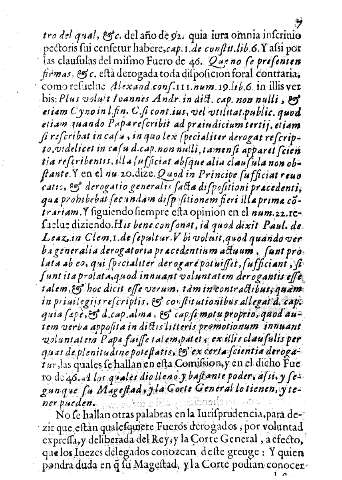 tro del qual, &c. del año de 92. quia iura omnia in scrinio
pectoris sui censetur habere, cap. 1. de constit. lib. 6. Y asi por
las clausulas del mismo Fuero de 46. Que no se presenten
firmas, &c. está derogada toda disposicion foral contraria,
como resuelue Alexand. cons. 111. num. 19. lib. 6. in illis ver
bis: Plus voluit Ioannes Andr. in dict. cap. non nulli, &
etiam Cyno in l. fin. C. si cont. ius, vel vtilitat. public. quod
etiam quando Papa rescribit ad praeiudicium tertij, etiam
si rescribat in casu, in quo lex specialiter derogat rescrip-
to, videlicet in casu d. cap. non nulli, tamen si apparet scien
tia rescribentis, illa sufficiat absque alia clausula non ob-
stante. Y en el nu. 20. dize. Quod in Principe sufficiat reuo
catio, & derogatio generalis facta dispositioni praecedenti,
qua prohibebat secundam dispositionem fieri illa prima cō
trariam. Y siguiendo siempre esta opinion en el num. 22. re-
suelue diziendo. His bene consonat, id quod dixit Paul. de
Leaz. in Clem. 1. de sepultur. Vbi voluit, quod quando ver
ba generalia derogatoria praecedentium actuum, sunt pro
lata ab eo, qui specialiter derogare potuisset, sufficiant, si
sunt ita prolata, quod innuant voluntatem derogantis esse
talem, & hoc dicit esse verum, tam in contractibus, quàm
in priuilegijs rescriptis, & constitutionibus allegat d. cap.
quia saepè, & d. cap. alma, & cap. si motu proprio, quod au-
tem verba apposita in dictis litteris promotionum innuant
voluntatem Papa fuisse talem, patet, ex illis clausulis per
quas de plenitudine potestatis, & ex certa scientia deroga-
tur, las quales se hallan en esta Comission, y en el dicho Fue
ro de 46. a los quales dio lleno y bastante poder, assi, y se-
gun que su Magestad, y la Corte General lo tienen, y te-
ner pueden.
No se hallan otras palabras en la Iurisprudencia, para de-
zir que están qualesquiere Fueros derogados, por voluntad
expressa, y deliberada del Rey, y la Corte General, a efecto,
que los Iuezes delegados conozcan deste greuge: Y quien
pondra duda en q̃ su Magestad, y la Corte podian conocer